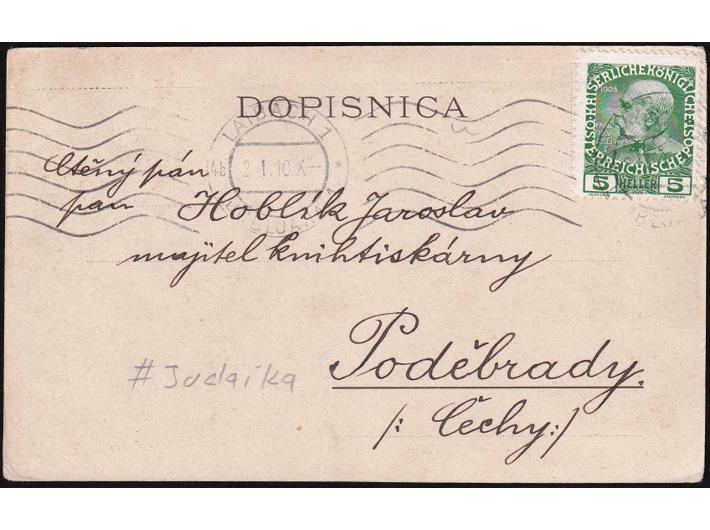 DOPISNICA
LAIBACH 1
14b 2 1.10.X
LJUBLJANA 1
KAISERLICHE KÖNIGLICHE ÖSTERREICHISCHE POST
1908
5 HELLER 5
Ctěný pán
pan Hoblík Jaroslav
majitel knihtiskárny
Poděbrady.
/: Čechy :/
# Judaika